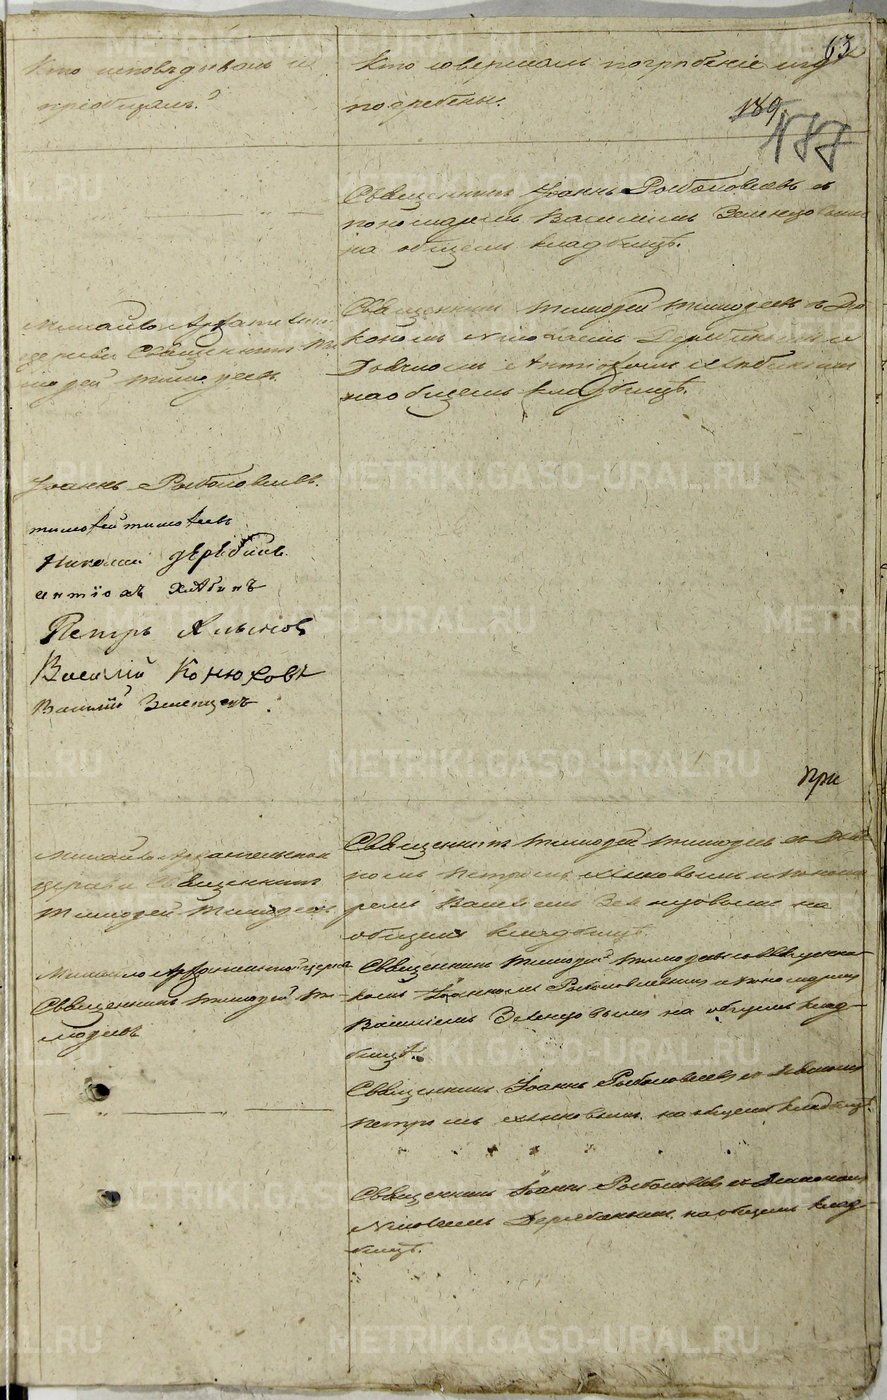 63
Кто исповѣдывалъ и
пріобщалъ?
Кто совершалъ погребеніе и гдѣ
погребены.
189
187
Священникъ Іоаннъ Рыболовлевъ съ
пономаремъ Василіемъ Зеленцовымъ
на общемъ кладбищѣ.
Михайло Архангельской
церкви Священникъ Ти-
моѳей Тимоѳеевъ
Священникъ Тимоѳей Тимоѳеевъ съ Дья-
кономъ Николаемъ Дерябинымъ и
Дьячкомъ Антіохомъ Хлябинымъ
на общемъ кладбищѣ.
Іоаннъ Рыболовлевъ.
Тимоѳей Тимоѳеевъ
Николай Дерябинъ
Антіохъ Хлябинъ
Петръ
Василій Конюховъ
Василій Зеленцовъ.
При
Михайло Архангельской
церкви Священникъ
Тимоѳей Тимоѳеевъ
Священникъ Тимоѳей Тимоѳеевъ съ
Петромъ и понома-
ремъ Василіемъ Зеленцовымъ на
общемъ кладбищѣ.
Михайло Архангельской церкви
Священникъ Тимоѳей Ти-
моѳеевъ
Священникъ Тимоѳей Тимоѳеевъ со Священни-
комъ Іоанномъ Рыболовлевымъ и пономаремъ
Василіемъ Зеленцовымъ на общемъ клад-
бищѣ.
Священникъ Іоаннъ Рыболовлевъ съ
Петромъ на общемъ кладбищѣ.
Священникъ Іоаннъ Рыболовлевъ съ Діакономъ
Николаемъ Дерябинымъ на общемъ клад-
бищѣ.
METRIKI.GASO-URAL.RU